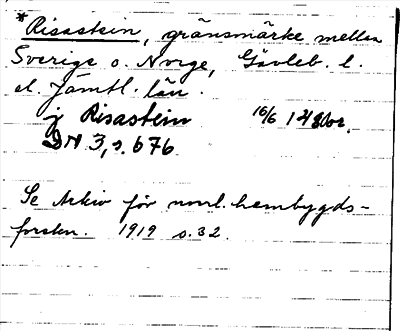 *Risastein, gränsmärke mellan
Sverige o. Norge, Gävleb. l.
el. Jämtl. län.
j Risastein 16/6
DN 3, s. 676
Se Arkiv för norrl. hembygds-
forskn. 1919 s. 32.